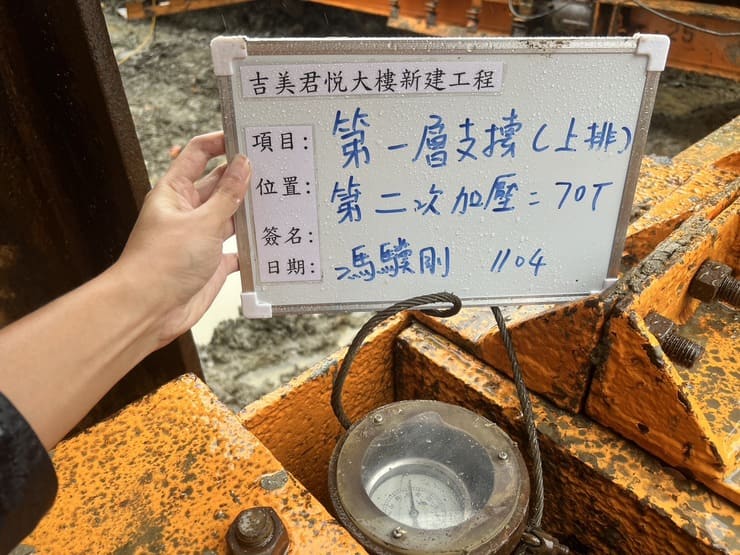 吉美君悅大樓新建工程
項目: 第一層支撐(上排)
位置: 第二次加壓=70T
簽名:
日期: 馮驥剛 1104
25